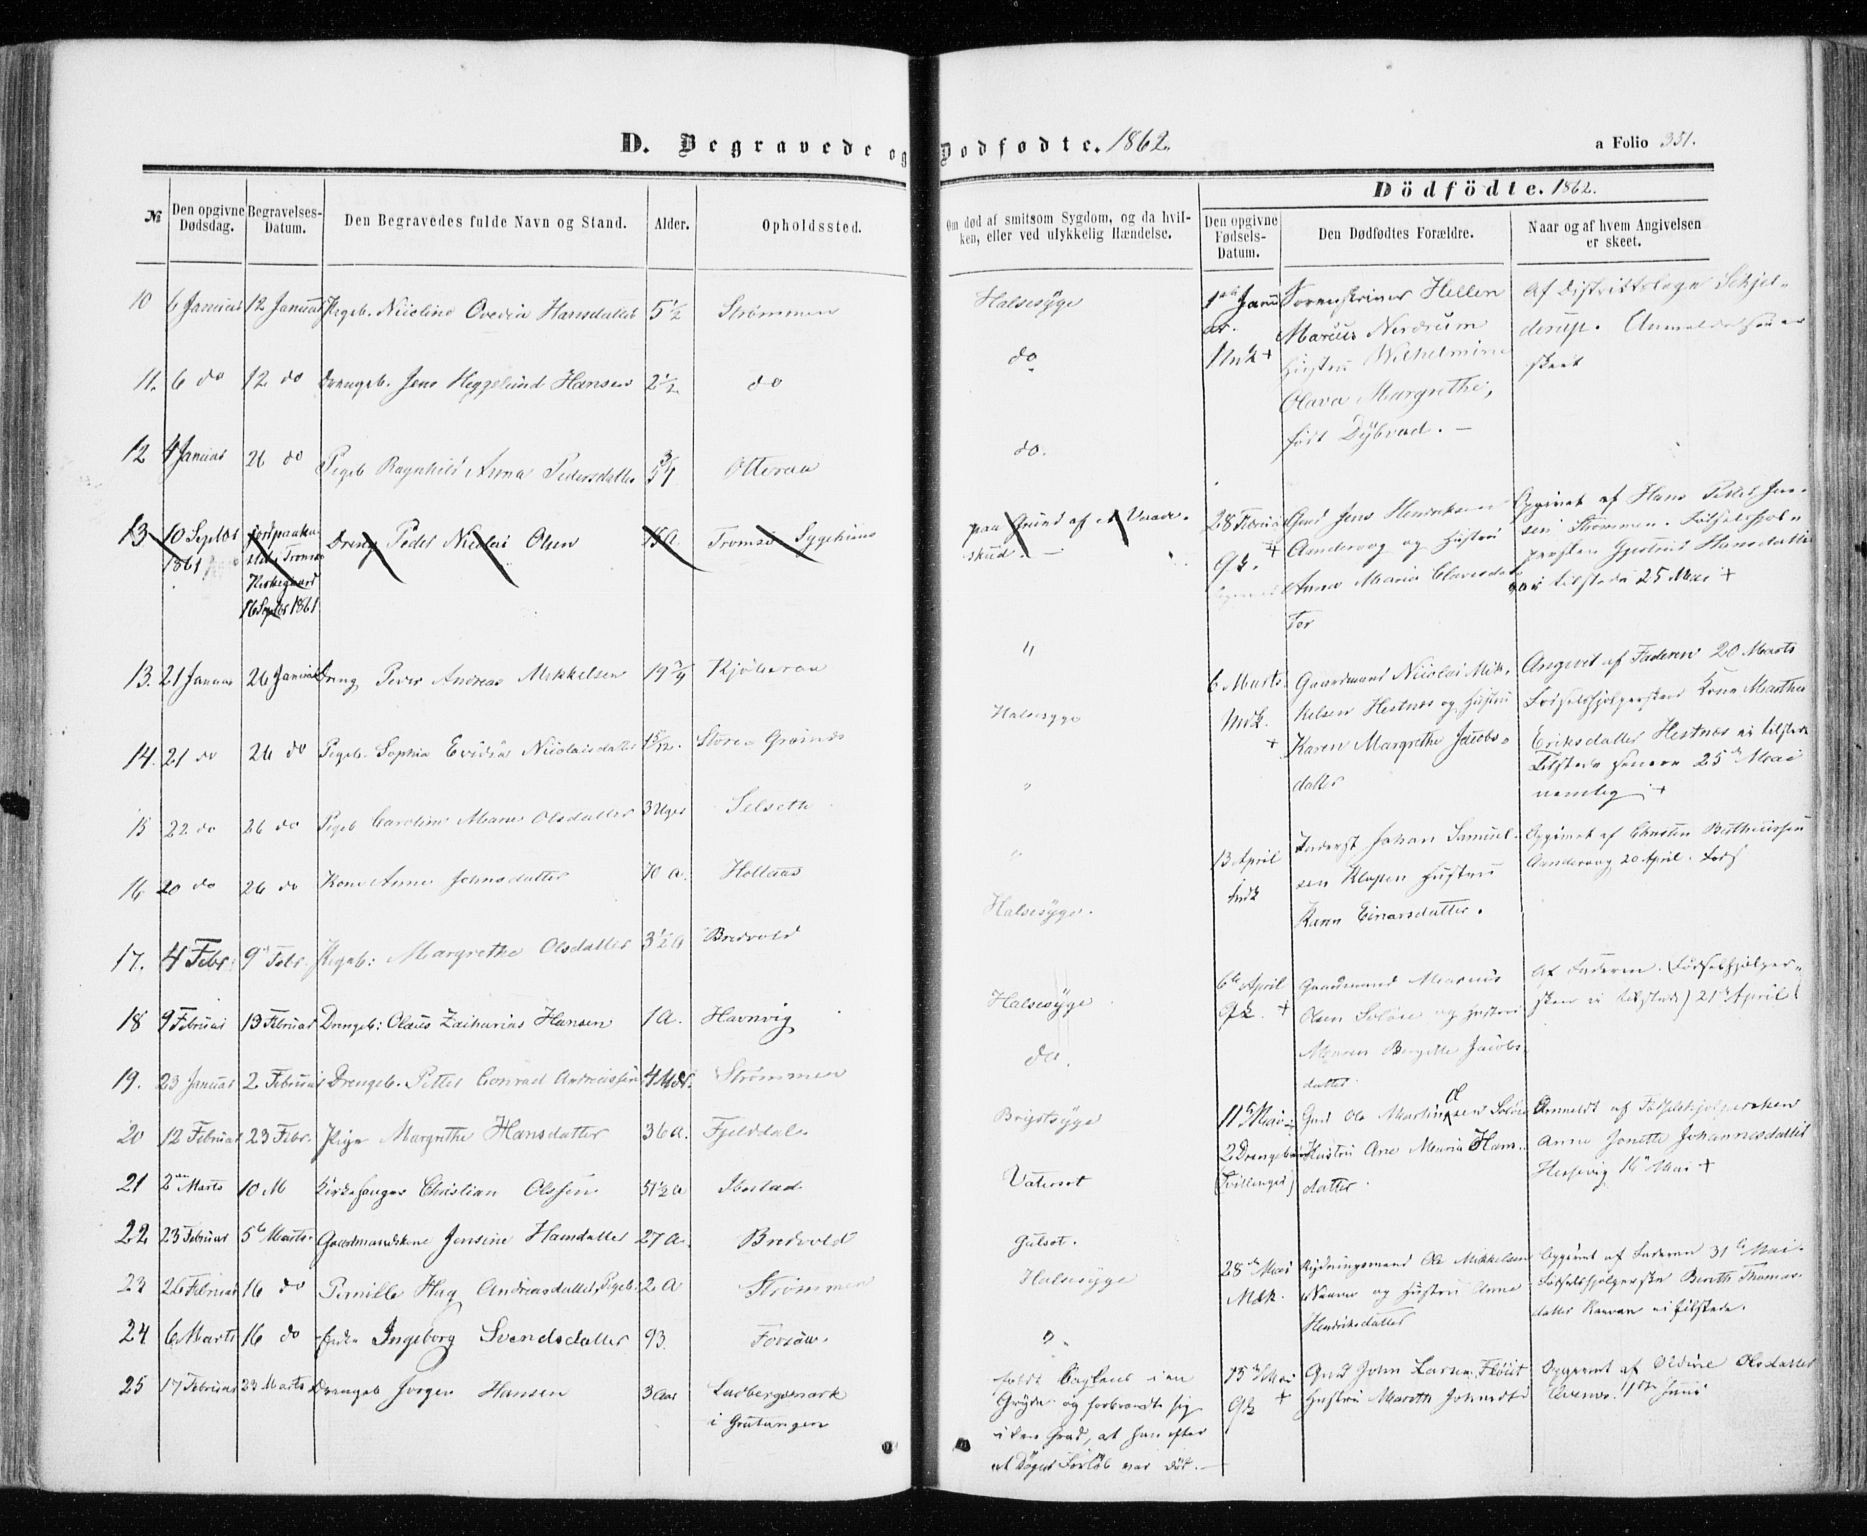 D. Begravede og Dødfødte. 1862.
a Folio 331.
Dödfödte. 1862.
№
Den opgivne Dødsdag.
Begravelses-Datum.
Den Begravedes fulde Navn og Stand.
Alder.
Opholdssted.
Om død af smitsom Sygdom, og da hvil-
ken, eller ved ulykkelig Hændelse.
Den opgivne Fødsels-Datum.
Den Dødfødtes Forældre.
Naar og af hvem Angivelsen er skeet.
10 6 Januar 12 Januar Pigeb. Nicoline Ovedia Hansdatter 5½ Strømmen Halsesyge
11. 6 do 12 do Drengeb. Jens Heggelund Hansen 2½ do do
12 4 Januar 26 do Pigeb Ragnhild Anna Pedersdatter Otteraa do.
13 10 Septbr 1861 Tromsø Kirkegaard 16 Septbr 1861 Dreng Peder Nicolai Olsen 15 a Tromsø Sygehuus paa Grund af et Vaade-
skud.
13. 21 Januar 26 Januar Dreng Peder Andreas Mikkelsen 19¾ Kjøberaa "
14. 21 do 26 do Pigeb. Sophia Evidia Nicolaisdatter Store Grønnæs Halsesyge
15 22 do 26 do Pigeb Caroline Marie Olsdatter 3 Uger Selsette "
16 20 do 26 do Kone Anne Johnsdatter 70 a. Hollaas "
17. 4 Febr. 9 Febr. Pigeb: Margrethe Olsdatter 3½ a Bredvold Halsesyge.
18 9 Februar 13 Februar Drengeb: Olaus Zacharias Hansen 1 a. Havnvig Halsesyge
19. 23 Januar 2 Februar Drengeb. Petter Conrad Andreassen 4 Mdr. Strømmen do.
20 12 Februar 23 Febr. Pige Margrethe Hansdatter 36 a. Fjelddal Brystsyge
21 2den Marts 10 M Kirkesanger Christian Olssen 31½ a Ibestad Vatersot
22 23 Februar 5te Marts Gaardmandskone Jensine Hansdatter 27 a. Bredvold Gulsot.
23 26 Februar 16 do Pernille Hag Andreasdatter, Pigeb. 2 a Strømmen Halsesyge
24 6 Marts 16 do Enke Ingeborg Svendsdatter 93. "
25 17 Februar 23 Marts Drengeb Jørgen Hansen 3 Aar Ludbergsmark
i Gratangen
faldt baglæns i en
Gryde og forbrændte sig
i den Grad, at han efter
et Døgns Forløb var død.
1ste Januar. Mdk + Sorenskriver Hellen
Marcus Nerdrum
Hustru Wilhelmine
Olava Margrethe,
født Dybvad.
Af Distriktslæge Schjel-
derup. Anmeldelsen er
skeet
28 Februar Qk. + Gmd Jens Henriksen
Aandervaag og Hustru
Anna Maria Olavesdat-
ter
Opgivet af Hans Peder Jen-
sen Strømmen. Fødselshjæl-
persken Gjertrud Hansdatter
var tilstede 25 Mai +
6 Marts. Mdk. + Gaardmand Nicolai Mik-
kelsen Hestnæs og Hustru
Karen Margrethe Jacobs-
datter
Angivet af Faderen 20 Marts
Fødselshjælpersken Kone Marthe
Eriksdatter Hestnæs ei tilstede
Tilstede senere 25de Mai
nemlig +
13 April Mdk Inderst Johan Samuel-
sen Klapen Hustru
Karen Einarsdatter.
Opgivet af Christen Berthiussen
Aandervaag 20 April.
6te April Qk. + Gaardmand Marius
Olsen Soløe og Hustru
Maren Bergitte Jacobs-
datter.
Af Faderen. (Fødselshjælper-
sken ei tilstede) 21de April
11te Mai 2 Drengebørn (Tvillinger) Gmd Ole Martin Olsen Soløe
Hustru Ane Maria Hans-
datter.
Anmeldt af Fødselshjælpersken
Anne Jonette Johannesdatter
Hessevig 16de Mai +
28de Mai Mdk. Rydningsmand Ole Mikkelsen
og Hustru Anne
Henriksdatter
Opgivet af Faderen 31te Mai.
Fødselshjælperske Berith Thomas-
datter ei tilstede.
15de Mai Qk + Gmd John Larsen
Hustru Mareth Johnsdtr
Opgivet af Oldine Olsdatter
1ste Juni